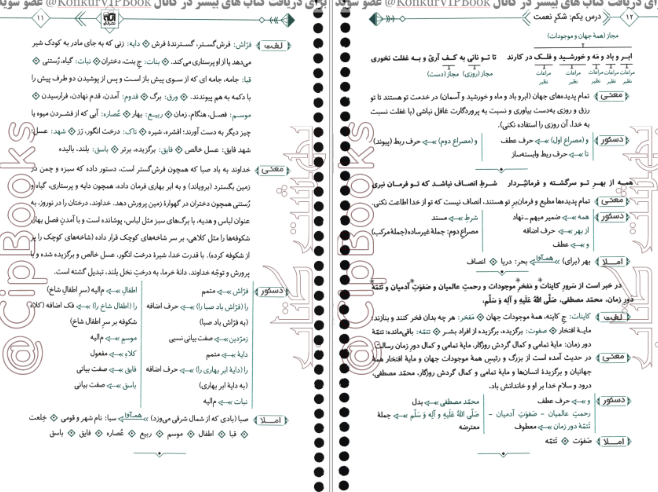 برای دریافت کتاب های بیشتر در کانال KonkurVIPBook@ عضو شوید
۱۲
درس یکم: شکر نعمت
مجاز (همهٔ جهان و موجودات)
ابر و باد و مَه و خورشید و فلک در کارند تا تو نانی به کف آریّ و به غفلت نخوری
مراعات نظیر مراعات نظیر مراعات نظیر مراعات نظیر مجاز (روزی) مجاز (دست)
معنی تمام پدیده‌های جهان (ابر و باد و ماه و خورشید و آسمان) در خدمت تو هستند تا تو
رزق و روزی به‌دست بیاوری و نسبت به پروردگارت غافل نباشی (با غفلت نسبت
به خدا، آن روزی را استفاده نکنی).
دستور و (مصراع اول) حرف عطف
تا حرف ربط وابسته‌ساز
و (مصراع دوم) حرف ربط (پیوند)
همه از بهر تو سرگشته و فرمانبردار شرط انصاف نباشد که تو فرمان نبری
معنی تمام پدیده‌ها مطیع و فرمان‌بر تو هستند، انصاف نیست که تو از خدا اطاعت نکنی.
دستور همه ضمیر مبهم ـ نهاد
از بهر حرف اضافه
و عطف
شرط مسند
مصراع دوم: جملهٔ غیرساده (جملهٔ مرکب)
املا بهر (برای) هم‌آوا بحر: دریا انصاف
در خبر است از سرورِ کاینات و مَفخرِ موجودات و رحمتِ عالمیان و صفوتِ آدمیان و تتمّهٔ
دور زمان، محمّد مصطفی، صَلَّی اللهُ عَلَیهِ وَ آلِهِ وَ سَلَّم،
لغت کاینات: جِ کاینه، همهٔ موجودات جهان مَفخَر: هر چه بدان فخر کنند و بنازند؛
مایهٔ افتخار صفوت: برگزیده، برگزیده از افراد بشر تتمّه: باقی‌مانده؛ تتمّهٔ
دور زمان: مایهٔ تمامی و کمال گردش روزگار، مایهٔ تمامی و کمال دور زمان رسالت
معنی در حدیث آمده است از بزرگ و رئیس همهٔ موجودات جهان و مایهٔ افتخار همهٔ
جهانیان و برگزیدهٔ انسان‌ها و مایهٔ تمامی و کمال گردش روزگار، محمّد مصطفی،
درود و سلام خدا بر او و خاندانش باد.
دستور و حرف عطف
رحمتِ عالمیان - صفوتِ آدمیان -
تتمّهٔ دور زمان معطوف
محمّد مصطفی بدل
صَلَّی اللهُ عَلَیهِ وَ آلِهِ وَ سَلَّم جملهٔ
معترضه
املا صفوَت تتمّه
برای دریافت کتاب های بیشتر در کانال KonkurVIPBook@ عضو شوید
۱۱
لغت فرّاش: فرش‌گستر، گسترندهٔ فرش دایه: زنی که به جای مادر به کودک شیر
می‌دهد یا از او پرستاری می‌کند. بنات: جِ بنت، دختران نبات: گیاه، رُستنی
قبا: جامه، جامه ای که از سوی پیش باز است و پس از پوشیدن دو طرف پیش را
با دکمه به هم پیوندند. ورق: برگ قدوم: آمدن، قدم نهادن، فرارسیدن
موسم: فصل، هنگام، زمان ربیع: بهار عُصاره: آبی که از فشردن میوه یا
چیز دیگر به دست آورند؛ افشره، شیره تاک: درخت انگور، رَز شهد: عسل؛
شهد فایق: عسل خالص فایق: برگزیده، برتر باسق: بلند، بالیده
معنی خداوند به باد صبا که همچون فرش‌گستر است، دستور داده که سبزه و چمن در
زمین بگسترد (برویاند) و به ابر بهاری فرمان داده، همچون دایه و پرستاری، گیاه و
رُستنی همچون دختران در گهوارهٔ زمین پرورش دهد. خداوند، درختان را در نوروز، به
عنوان لباس و هدیه، با برگ‌های سبز مثل لباس، پوشانده است و با آمدنِ فصل بهار،
شکوفه‌ها را مثل کلاهی، بر سر شاخه‌های کوچک قرار داده (شاخه‌های کوچک را پر
از شکوفه کرده). با قدرت خدا، شیرهٔ درخت انگور، عسل خالص و برگزیده شده و با
پرورش و توجّه خداوند، دانهٔ خرما، به درختِ نخل بلند، تبدیل گشته است.
دستور فرّاش متمم
را (فرّاش باد صبا را) حرف اضافه
(به فرّاش باد صبا)
زمرّدین صفت بیانی نسبی
دایهٔ متمم
را (دایهٔ ابر بهاری را) حرف اضافه
(به دایهٔ ابر بهاری)
نبات م.الیه
اطفال م.الیه (سرِ اطفالِ شاخ)
را (اطفال شاخ را) فک اضافه (کلاه
شکوفه بر سرِ اطفال شاخ)
موسم م.الیه
کلاه مفعول
فایق صفت بیانی
باسق صفت بیانی
املا صبا (بادی که از شمال شرقی می‌وزد) هم‌آوا سبا: نام شهر و قومی خِلعت
قبا اطفال موسم ربیع عُصاره فایق باسق
@CipBooks